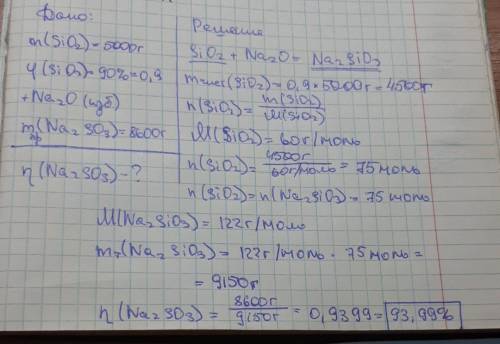 Дано:
m(SiO2) = 5000г
ψ(SiO2) = 90% = 0,9
+ Na2O (изб)
mпр(Na2SO3) = 8600г
η(Na2SO3) - ?
Решение
SiO2 + Na2O = Na2SiO3
mчист(SiO2) = 0,9 × 5000г = 4500г
n(SiO2) = m(SiO2)/M(SiO2)
M(SiO2) = 60г/моль
n(SiO2) = 4500г/60г/моль = 75 моль
n(SiO2) = n(Na2SiO3) = 75 моль
M(Na2SiO3) = 122г/моль
mт(Na2SiO3) = 122г/моль · 75 моль =
= 9150г
η(Na2SO3) = 8600г/9150г = 0,9399 = 93,99%